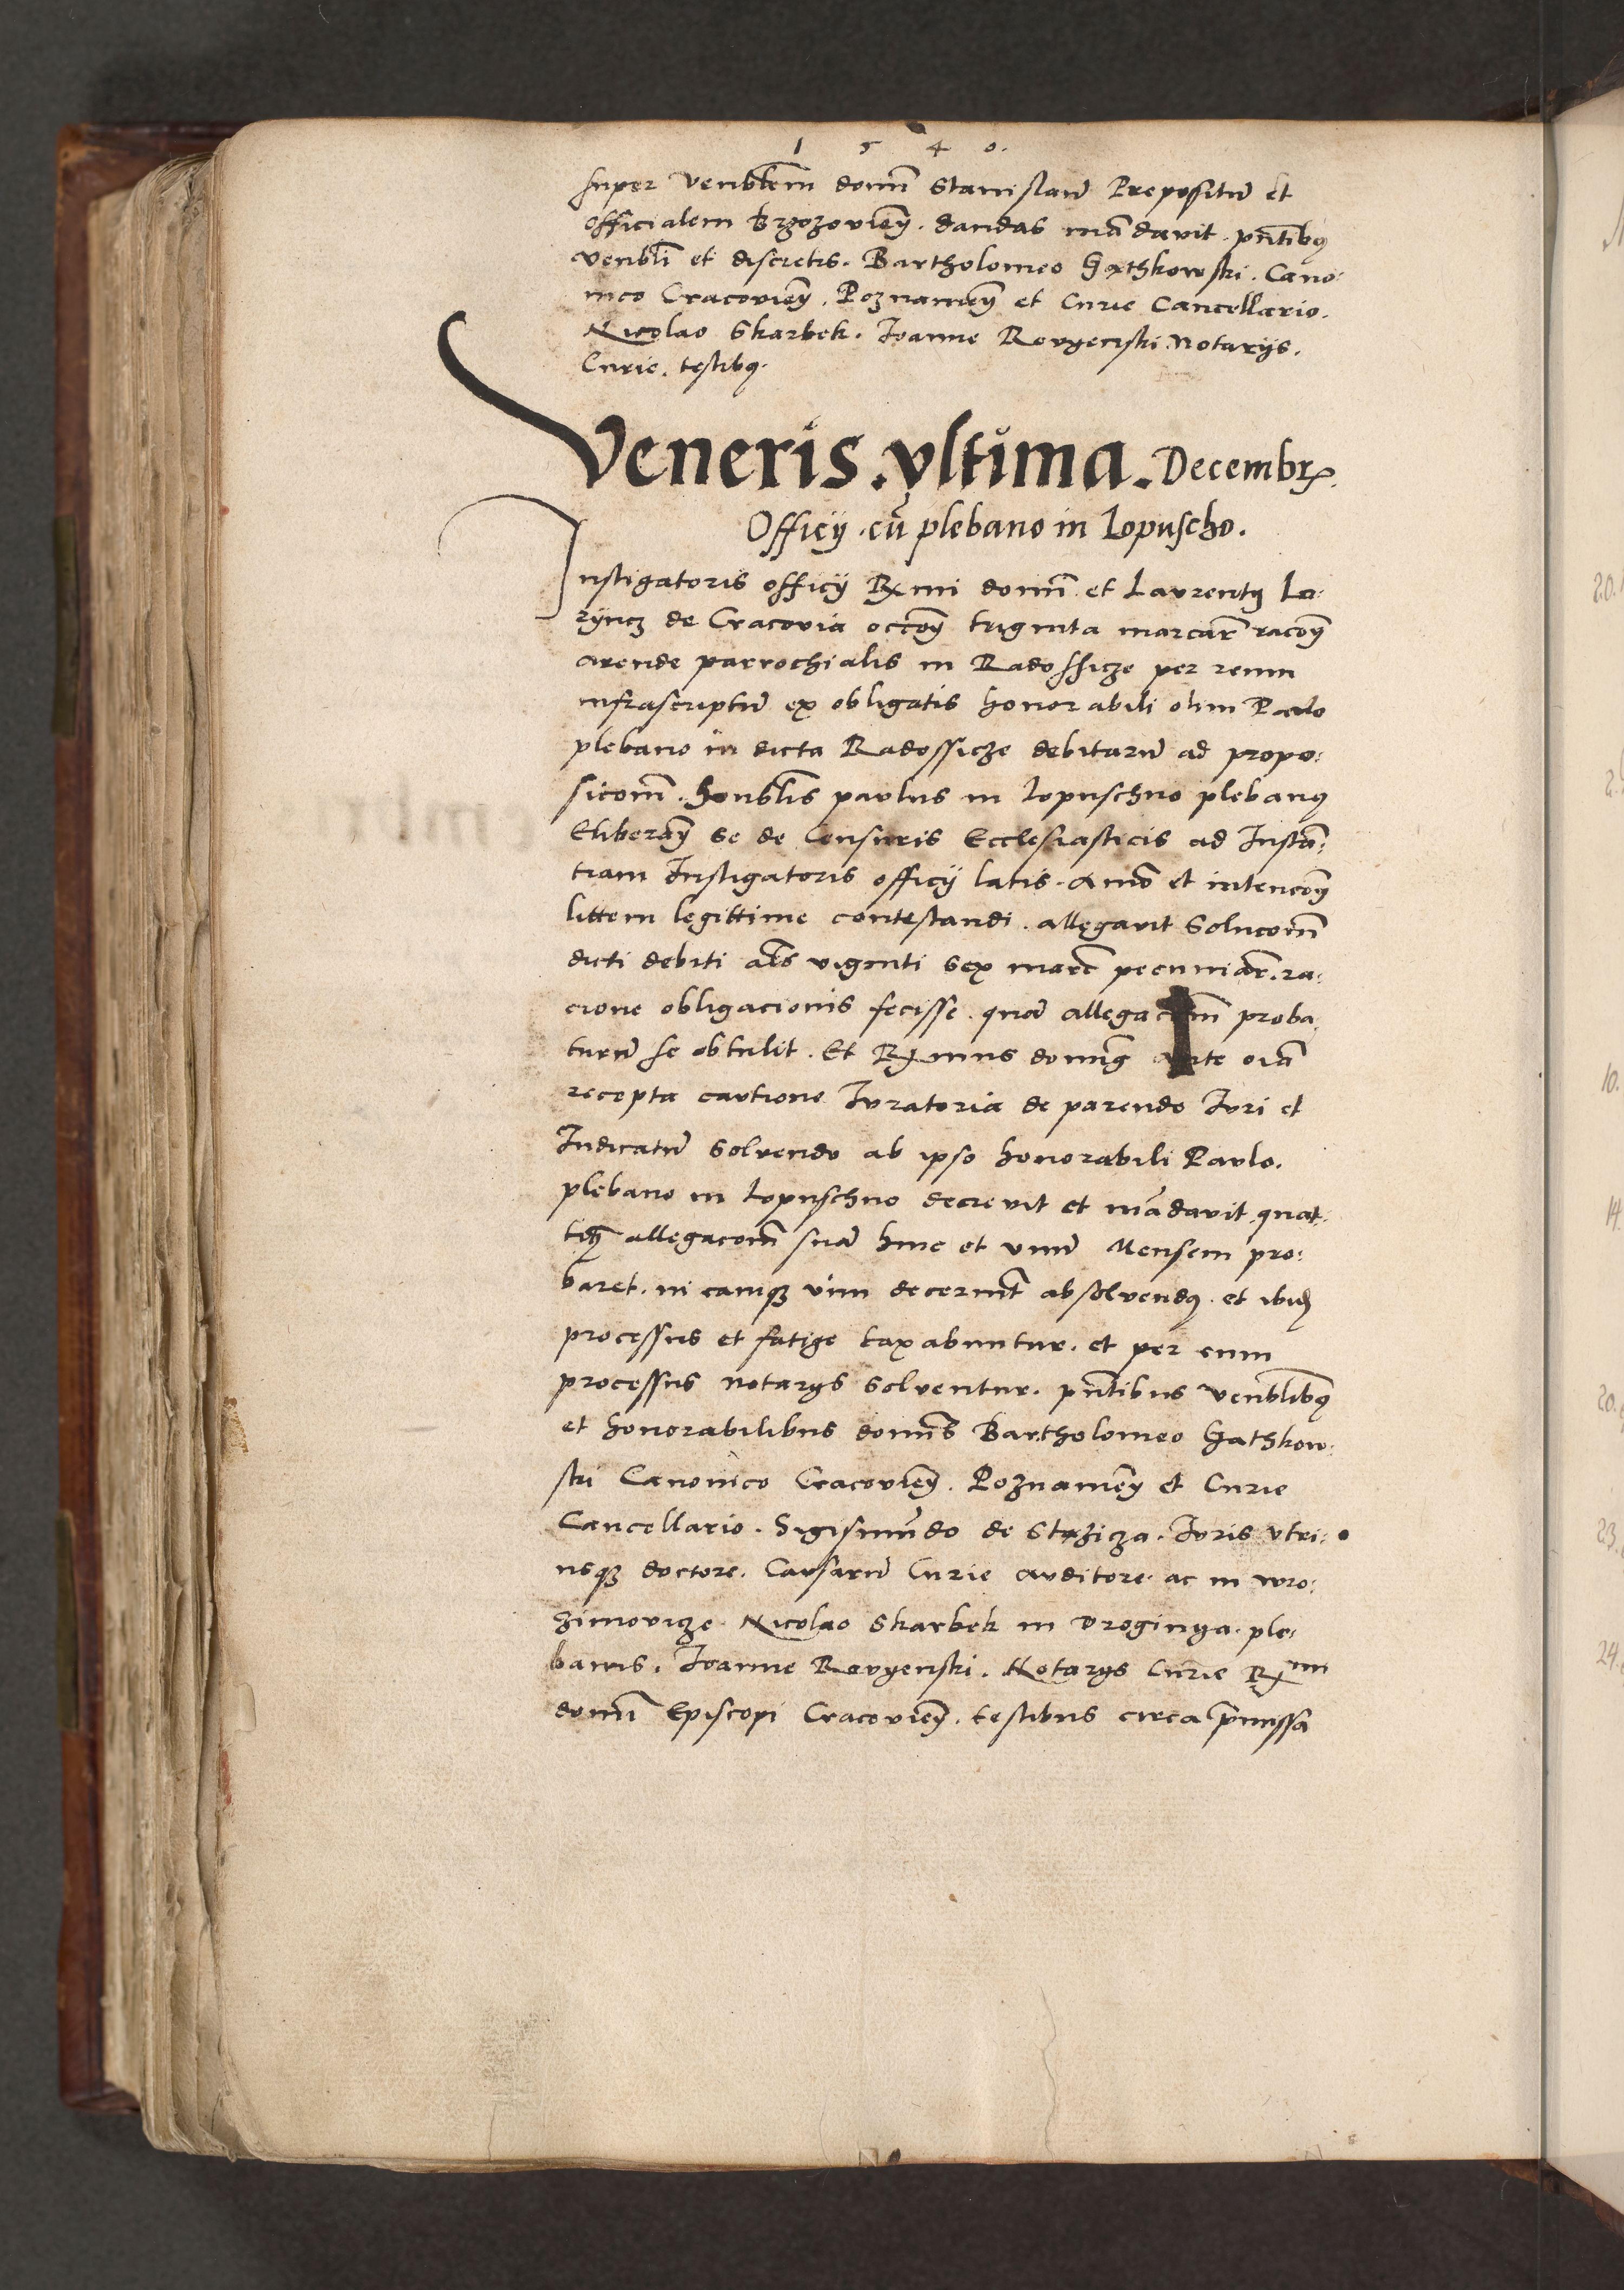 1 5 4 0.
super Venblem domi Stanislaũ Prepositũ et
officialem Brzozovieñ. dandas mãdavit. pñtibꝰ
venbli et discretis. Bartholomeo Gathkowski. Cano:
nico Cracovieñ. Poznanieñ et Curie Cancellario.
Nicolao Skarbek. Joanne Rovyenski Notarijs.
Curie. testibꝰ.
Veneris. vltima. Decembr̃.
Officij. cũ plebano in Lopuscho.
Instigatoris officij Rmi domi et Laurentij La:
ryncz de Cracovia occoñ triginta marcar̃ racoñ
arende parrochialis in Radoschicze per reum
infrascriptũ ex obligatis honorabili olim Paulo
plebano in dicta Radossicze debitarũ ad propo:
sicom̃. honblis paulus in Lopuschno plebanꝰ
Eliberañ se de Censuris Ecclesiasticis ad Instã:
tiam Instigatoris officij latis. Animo et intencoñ
littem legittime contestandi. allegavit Solucom̃
dicti debiti als viginti sex marc̃ pecuniar̃. ra:
cione obligacionis fecisse. quã allegacom̃ proba
turũ se obtulit. Et Rmus dominꝰ ante oiã
recepta cautione Iuratoria de parendo Iuri et
Iudicatũ solvendo ab ipso honorabili Paulo.
plebano in Lopuschno decrevit et mãdavit. quat:
tenꝰ allegacom̃ suã hinc et unũ Mensem pro:
baret. in eamqꝫ vim decernit absolvendꝰ. et ibidẽ
processus et fatige taxabuntur. et per eum
processus notarijs solventur. pñtibus Venblibꝰ
et honorabilibus domis Bartholomeo Gathkow:
ski Canonico Cracovieñ. Poznanieñ et Curie
Cancellario. Sigismũdo de Stazicza. Iuris vtri:
usqꝫ doctore. Causarũ Curie auditore. ac in wro:
zimovicze. Nicolao Skarbek in Droginya. ple:
banis. Joanne Rovyenski. Notarijs Curie Rmi
domi Episcopi Cracovieñ. testibus circa p̃missa